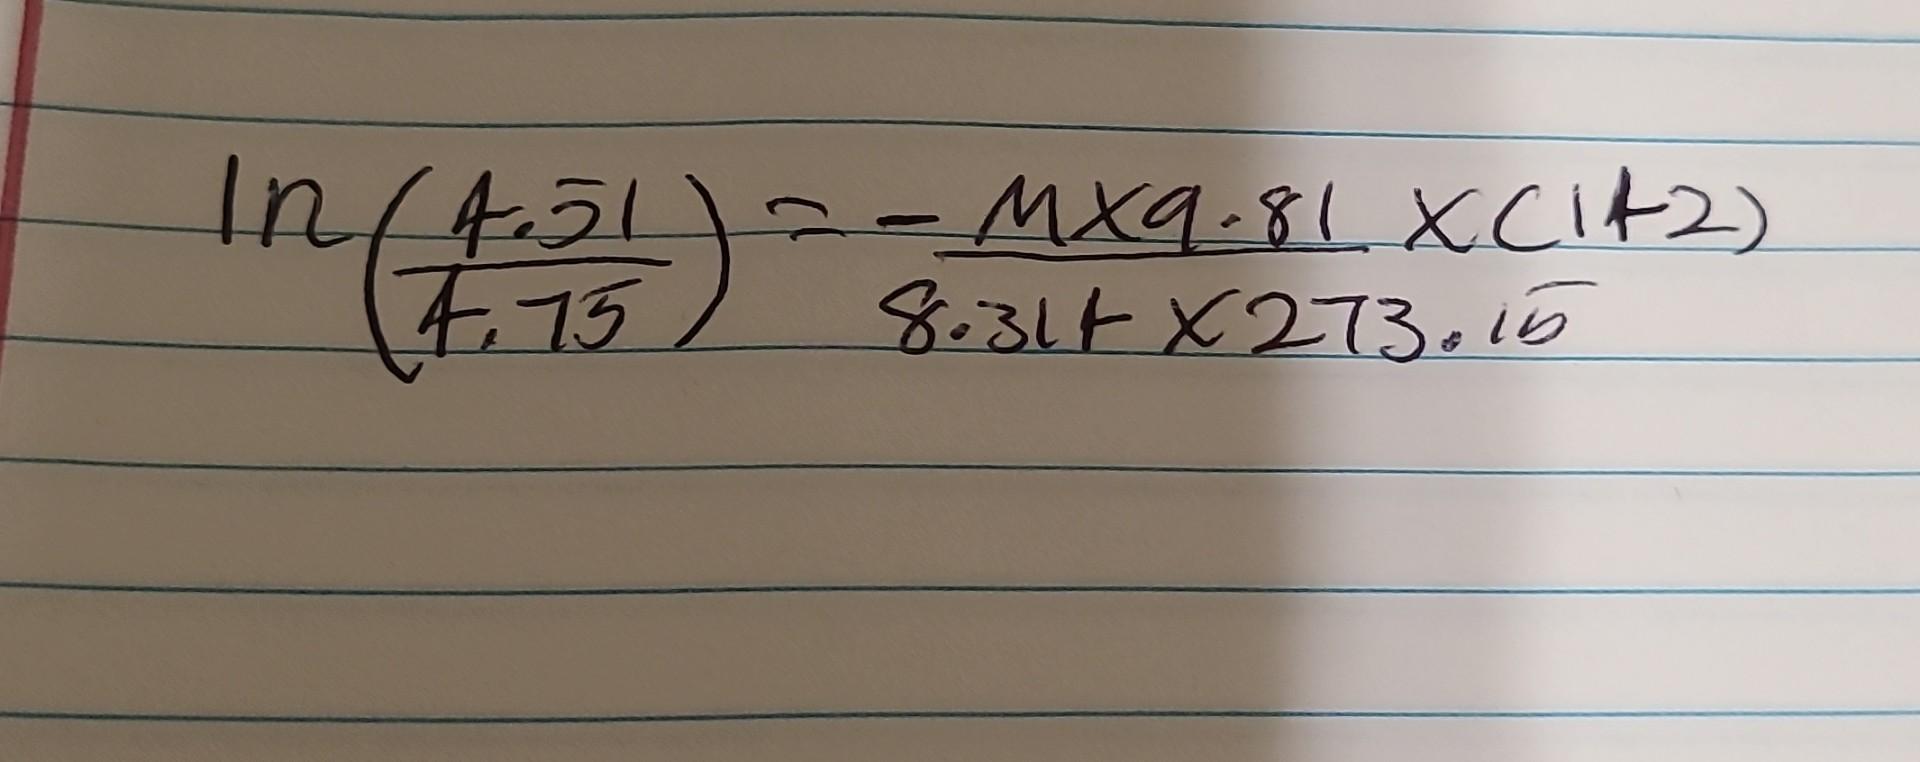 ln(4.51/4.75) = - M×9.81/8.314×273.15 ×(142)